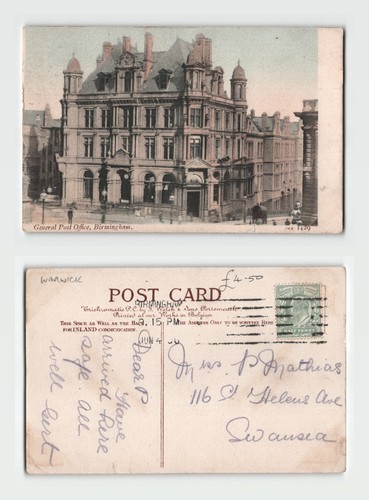 General Post Office, Birmingham.
WARWICK
£4.50
POST CARD
Trichromatic P.C. by J. Welch & Sons Portsmouth
Printed at our Works in Belgium
THIS SPACE AS WELL AS THE BACK
FOR INLAND COMMUNICATION.
THE ADDRESS ONLY TO BE WRITTEN HERE
BIRMINGHAM
9.15 PM
JUN 4
Dear P
Have
arrived here
safe all
well Gert
Miss P Mathias
116 St Helens Ave
Swansea